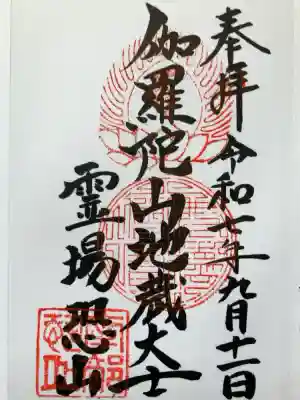 奉拝 令和七年九月十一日
伽羅陀山地蔵大士
霊場恐山